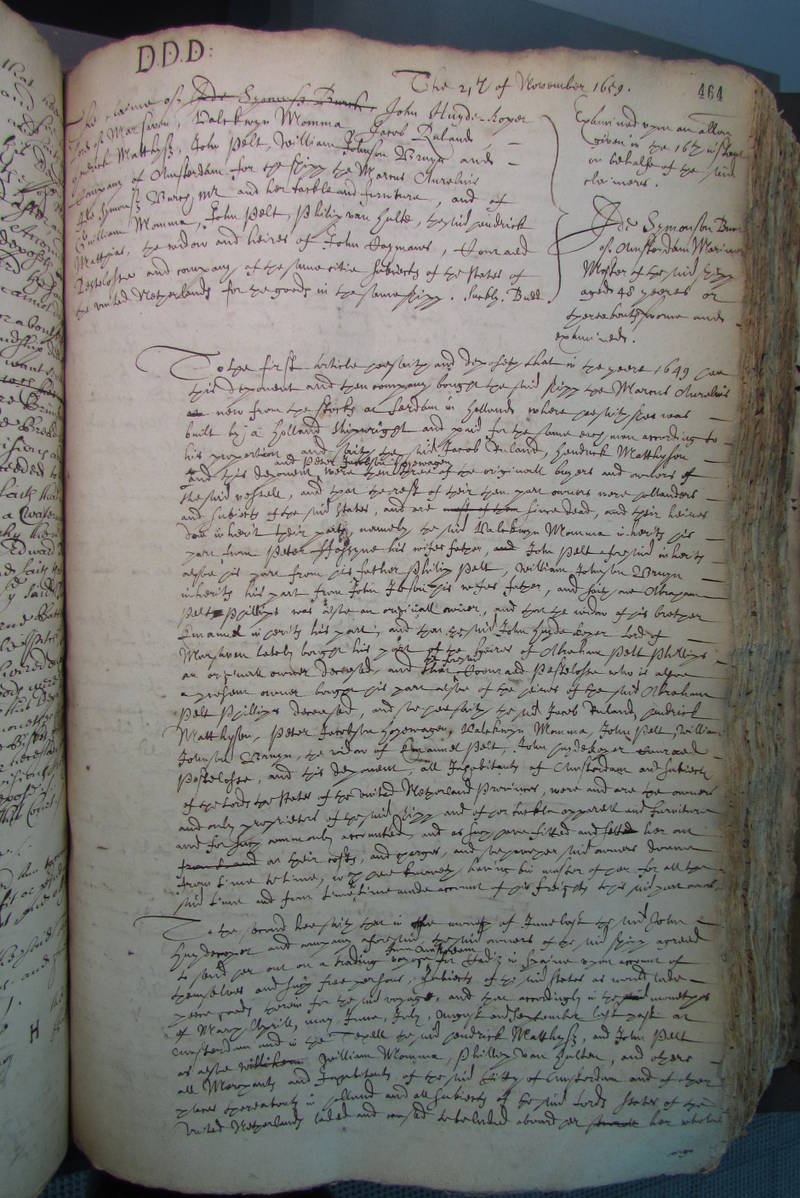 D.D.D:
The 21th of November 1659.
464
The claime of Ade Symonsz Burch, John Huyde-koper
Lord of Marseven, Balckwyn Momma Jacob Ruland
Hendrick Matthysz, John Pelt, William Johnson Bruyn and
Company of Amsterdam for the shipp the Marcus Aurelius
Ade Symonsz Burch Mr and her tackle and furniture, and of
William Momma, John Pelt, Philip van Hulte, the said Hendrick
Matthias, the widow and heires of John Heymans, Conraed
Pesteloshe and company of the same citie subiects of the States of
the united Netherlands for the goods in the same shipp. Suckly. Budd
Examined upon an allon
given in the 16th instant
on behalfe of the said
claimers.
Ade Symonson Burch
of Amsterdam Mariner
Master of the said shipp
aged 48 yeeres or
thereabouts sworne and
examined.
To the first article hee saith and deposeth that in the yeare 1649
this deponent and then company bought the said shipp the Marcus Aurelius
new from the stocks at Serdam in Holland where hee saith shee was
built by a Holland shipwright and paid for the same every man according to
his proportion and saith the said Jacob Ruland, Hendrick Matthyson
and Peter Jacobson Hopewagen
and this deponent were then three of the originall buyers and owners of
the said vessell, and that the rest of their then part owners were Hollanders
and subiects of the said States, and are most of them since dead, and their heires
doe inherit their parts, namely the said Balckwyn Momma inherits his
part from Peter his wifes father, and John Pelt aforesaid inherits
alsoe his part from his father Philip Pelt, William Johnson Bruyn
inherits his part from John his wifes father, and saith one Abraham
Pelt Phillips was alsoe an originall owner, and that the widow of his brother
Emanuel inherits his part, and that the said John Huyde koper Lord of
Marseven lately bought his part of the heires of Abraham Pelt Phillips
an originall owner deceased, and that Coonraed Pesteloshe who is alsoe
a present owner bought his part alsoe of the heires of the said Abraham
Pelt Phillips deceased, and hee saith the said Jacob Ruland, Hendrick
Matthyson, Peter Jacobson Hopewagen, Balckwyn Momma, John Pelt, William
Johnson Bruyn, the widow of Emanuel Pelt, John Huydekoper Conraed
Pesteloshe, and this deponent, all Inhabitants of Amsterdam and subiects
of the Lords the States of the united Netherland Provinces, were and are the owners
and only proprietors of the said shipp and of her tackle apparell and furniture
and soe commonly accounted, and as such have fitted and her out
from time to time at their costs, and charges, and
from time to time, which hee knoweth having bin master of her for all the
said time and from time to time made account of his freights to his said part owners.
To the second hee saith that in the moneth of June last the said John
Huydecoper and company aforesaid the said owners of the said shipp agreed
to send her out on a trading voyage from Amsterdam for Cadiz in Spaine upon account of
themselves and such free persons, subiects of the said States as would lade
theere goods therein for the said voyage, and that accordingly in the said moneths
of March Aprill, may June, July, August and September last past at
Amsterdam and in the Texell the said Hendrick Matthysz, and John Pelt
as alsoe William Momma, Phillip van Hulten, and others
all Marchants and Inhabitants of the said Citty of Amsterdam and of other
places thereabouts in Holland and all subiects of the said Lords States of the
United Netherlands laded and caused to be laded aboard her her whole